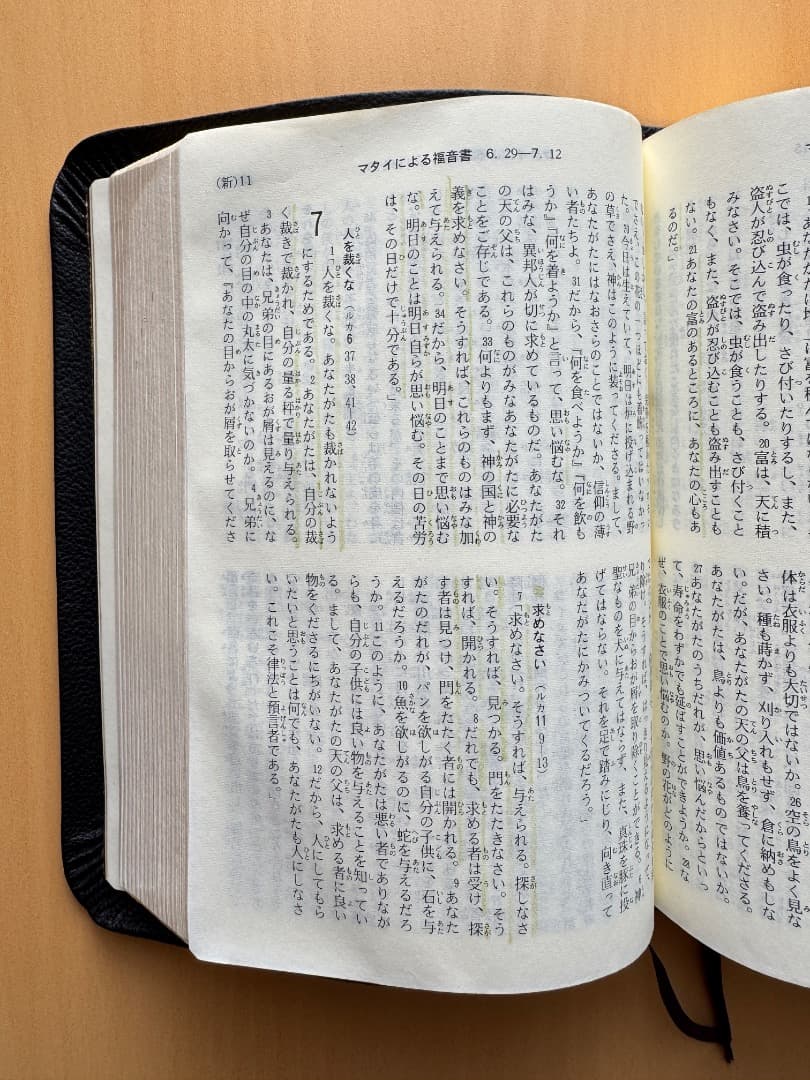 こでは、虫が食ったり、さび付いたりするし、また、
盗人が忍び込んで盗み出したりする。20富は、天に積
みなさい。そこでは、虫が食うことも、さび付くこと
もなく、また、盗人が忍び込むことも盗み出すことも
ない。21あなたの富のあるところに、あなたの心もあ
るのだ。」
体は衣服よりも大切ではないか。26空の鳥をよく見な
さい。種も蒔かず、刈り入れもせず、倉に納めもしな
い。だが、あなたがたの天の父は鳥を養ってくださる。
あなたがたは、鳥よりも価値あるものではないか。
27あなたがたのうちだれが、思い悩んだからといっ
て、寿命をわずかでも延ばすことができようか。28な
ぜ、衣服のことで思い悩むのか。野の花がどのように
(新)11
マタイによる福音書 6. 29―7. 12
でさえ、この花の一つほどにも着飾ってはいなかっ
た。30今日は生えていて、明日は炉に投げ込まれる野
の草でさえ、神はこのように装ってくださる。まして、
あなたがたにはなおさらのことではないか、信仰の薄
い者たちよ。31だから、『何を食べようか』『何を飲も
うか』『何を着ようか』と言って、思い悩むな。32それ
はみな、異邦人が切に求めているものだ。あなたがた
の天の父は、これらのものがみなあなたがたに必要な
ことをご存じである。33何よりもまず、神の国と神の
義を求めなさい。そうすれば、これらのものはみな加
えて与えられる。34だから、明日のことまで思い悩む
な。明日のことは明日自らが思い悩む。その日の苦労
は、その日だけで十分である。」
人を裁くな（ルカ6 37―38、41―42）
7
1「人を裁くな。あなたがたも裁かれないよう
にするためである。2あなたがたは、自分の裁
く裁きで裁かれ、自分の量る秤で量り与えられる。
3あなたは、兄弟の目にあるおが屑は見えるのに、な
ぜ自分の目の中の丸太に気づかないのか。4兄弟に
向かって、『あなたの目からおが屑を取らせてくださ
兄弟の目からおが屑を取り除くことができる。6神
聖なものを犬に与えてはならず、また、真珠を豚に投
げてはならない。それを足で踏みにじり、向き直って
あなたがたにかみついてくるだろう。」
求めなさい（ルカ11 9―13）
7「求めなさい。そうすれば、与えられる。探しなさ
い。そうすれば、見つかる。門をたたきなさい。そう
すれば、開かれる。8だれでも、求める者は受け、探
す者は見つけ、門をたたく者には開かれる。9あなた
がたのだれが、パンを欲しがる自分の子供に、石を与
えるだろうか。10魚を欲しがるのに、蛇を与えるだろ
うか。11このように、あなたがたは悪い者でありなが
らも、自分の子供には良い物を与えることを知ってい
る。まして、あなたがたの天の父は、求める者に良い
物をくださるにちがいない。12だから、人にしてもら
いたいと思うことは何でも、あなたがたも人にしなさ
い。これこそ律法と預言者である。」